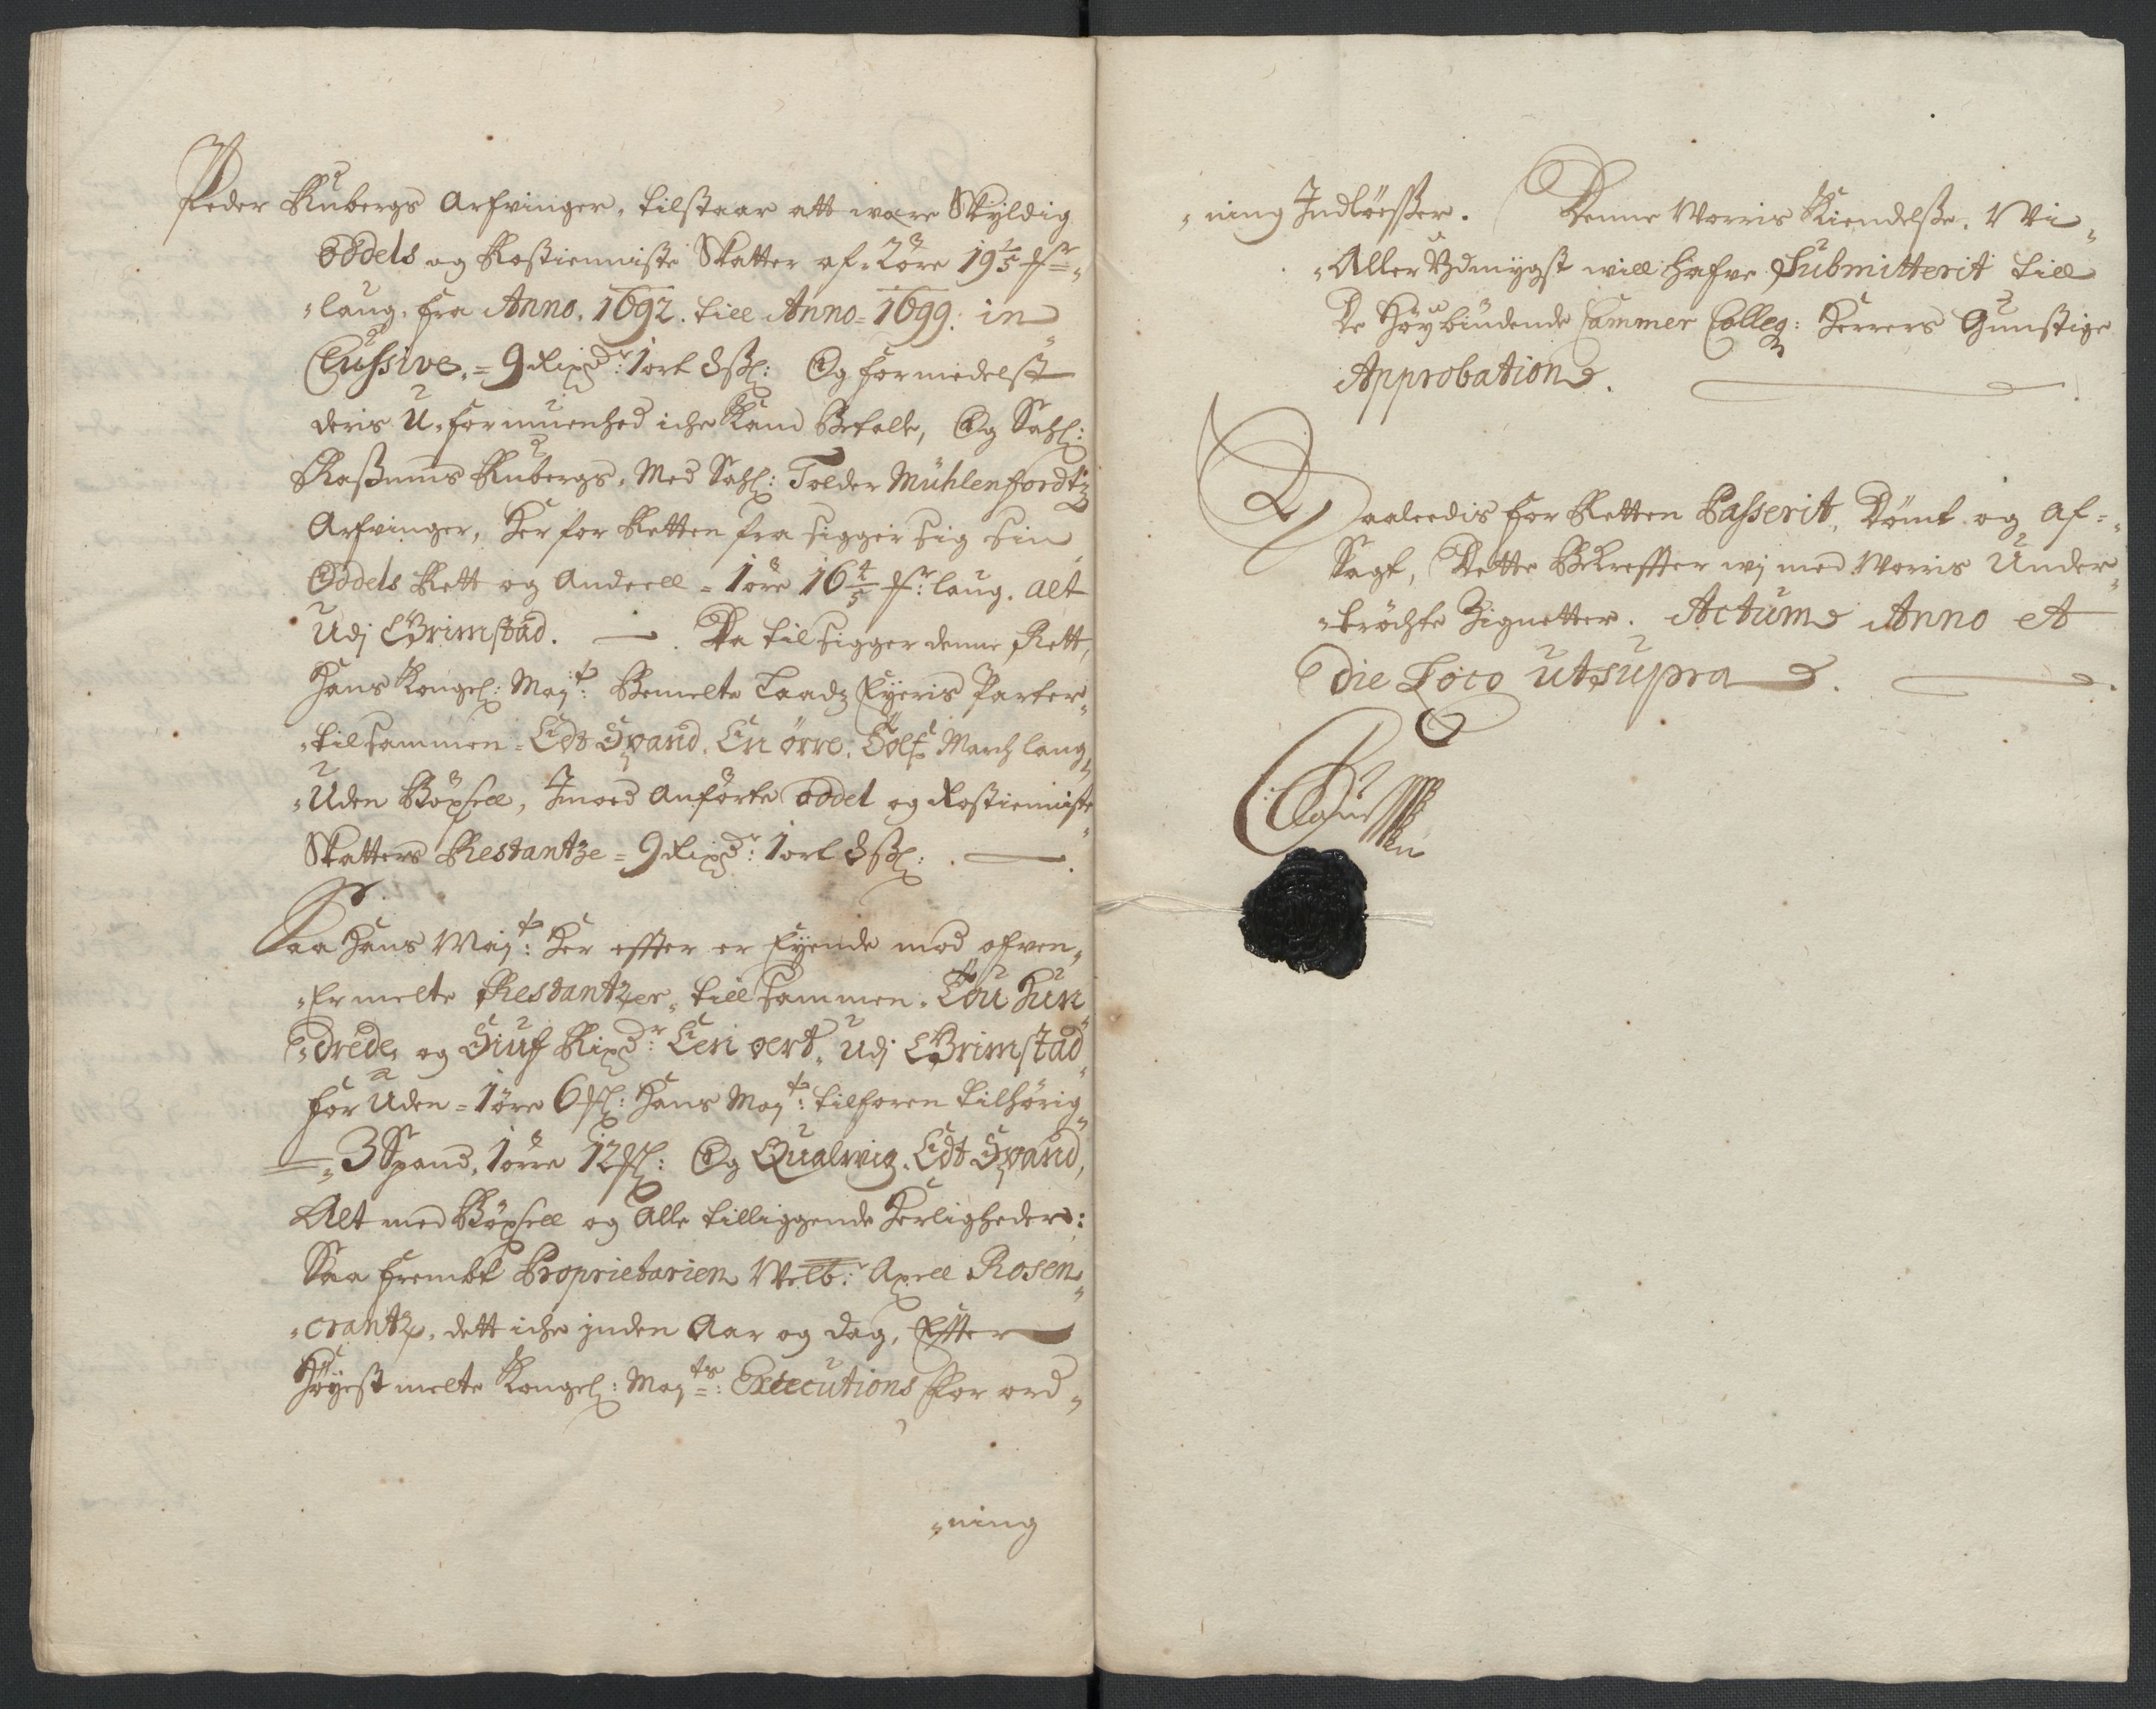 Peder Rubergs Arfvinger, tilstaar att were Skyldig
oddels og Rostienniste Skatter af 2 øre 19 1/5 ℔r
laug, fra Anno. 1692. till Anno 1699: in
Clussive. = 9 Rixdr: 1 ort 8 sk: Og formedelst
deris U-formuenhed iche Kand Betale, Og Sahl:
Rasmus Rubergs, Med Sahl: Tolder Mühlenfordtz
Arfvinger, her for Retten fra sigger sig sin
Oddels Rett og Andeell = 1 øre 16 4/5 ℔r: laug. alt
Udj Grimstad. — . Da til sigger denne Rett,
Hans Kongel: Mayt: Bemelte Laadz Eyeris Parter,
tilsammen = Edt Spand. En ørre. Tolf March laug,
Uden Böxsell, Imod Anførte oddel og Rostienniste
Skatters Restantze = 9 Rixdr: 1 ort 8 sk: —.
Saa Hans Mayt: her effter er Eyende mod ofven,
Ermelte Restantzer, till sammen. Tou Hun
drede, og Siuf Rixdr: Een oert, Udj Grimstad
for Uden = 1 øre 6 ℔: Hans Mayt: tilforen tilhørig
= 3 Spand, 1 ørre 12 ℔: Og Qualwig. Edt Spand,
Alt med Böxsell og Alle tilliggende Herligheder:
Saa frembt Proprietarien Welb:r Axell Rosen,
crantz, dett iche inden Aar og dag, Effter
Høyest melte Kongel: Mayts: Executions For ord,
,ning
,ning Indløesser. Denne Worris Kiendelsse. Wi
Aller Ydmygst will hafve Submitterit till
De Høybiudende Cammer Colleg: Herrers Gunstige
Approbation.
Saaleedis for Retten Passerit, Dømt og af=
Sagt, Dette Bekreffter wj med Worris Under
trøchte Zignetter. Actum Anno et
die Loco utsupra.